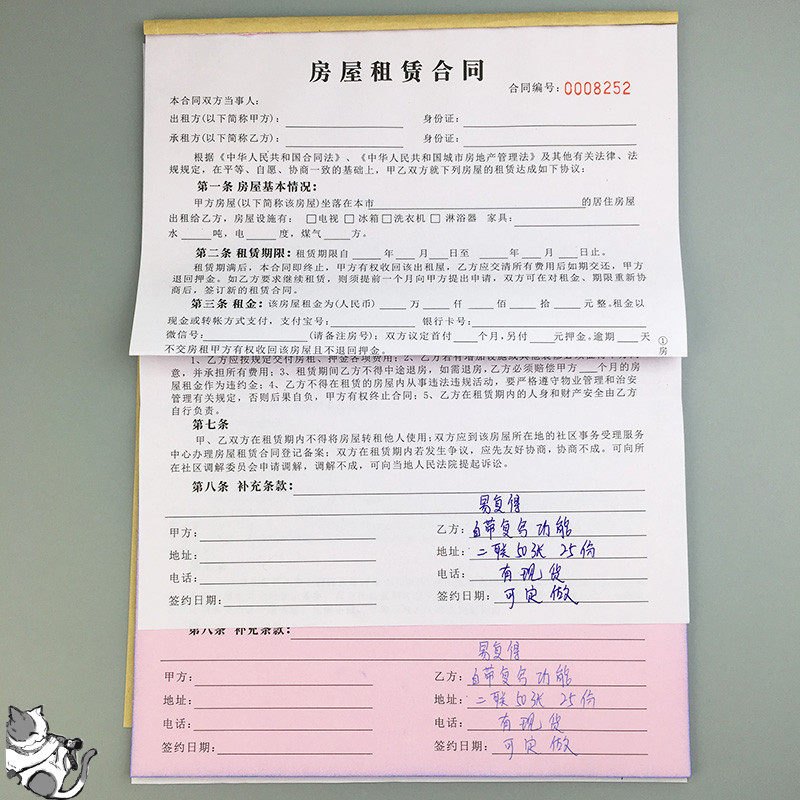 房屋租赁合同
合同编号：0008252
本合同双方当事人：
出租方(以下简称甲方)： 身份证：
承租方(以下简称乙方)： 身份证：
根据《中华人民共和国合同法》、《中华人民共和国城市房地产管理法》及其他有关法律、法
规规定，在平等、自愿、协商一致的基础上，甲乙双方就下列房屋的租赁达成如下协议：
第一条 房屋基本情况：
甲方房屋(以下简称该房屋)坐落在本市 的居住房屋
出租给乙方，房屋设施有： □电视 □冰箱□洗衣机 □淋浴器 家具：
水 吨，电 度，煤气 方。
第二条 租赁期限：租赁期限自 年 月 日至 年 月 日止。
租赁期满后，本合同即终止，甲方有权收回该出租屋，乙方应交清所有费用后如期交还，甲方
退回押金。如乙方要求继续租赁，则须提前一个月向甲方提出申请，双方可在对租金、期限重新协
商后，签订新的租赁合同。
第三条 租金：该房屋租金为(人民币) 万 仟 佰 拾 元整。租金以
现金或转帐方式支付，支付宝号： 银行卡号：
微信号： (请备注房号)：双方议定首付 个月，另付 元押金。逾期 天
不交房租甲方有权收回该房屋且不退回押金。
①
房
1、乙方应按规定交付房租、押金各项费用；2、乙方若有增加设施或其他装修必须征得甲方同
意，并承担所有费用；3、租赁期间乙方不得中途退房，如需退房，乙方必须赔偿甲方 个月的房
屋租金作为违约金；4、乙方不得在租赁的房屋内从事违法违规活动，要严格遵守物业管理和治安
管理有关规定，否则后果自负，甲方有权终止合同；5、乙方在租赁期内的人身和财产安全由乙方
自行负责。
第七条
甲、乙双方在租赁期内不得将房屋转租他人使用；双方应到该房屋所在地的社区事务受理服务
中心办理房屋租赁合同登记备案；双方在租赁期内若发生争议，应先友好协商，协商不成。可向所
在社区调解委员会申请调解，调解不成，可向当地人民法院提起诉讼。
第八条 补充条款：
易复得
甲方： 乙方：自带复写功能
地址： 地址：二联50张 25份
电话： 电话：有现货
签约日期： 签约日期：可定做
第八条 补充条款：
易复得
甲方： 乙方：自带复写功能
地址： 地址：二联50张 25份
电话： 电话：有现货
签约日期： 签约日期：可定做